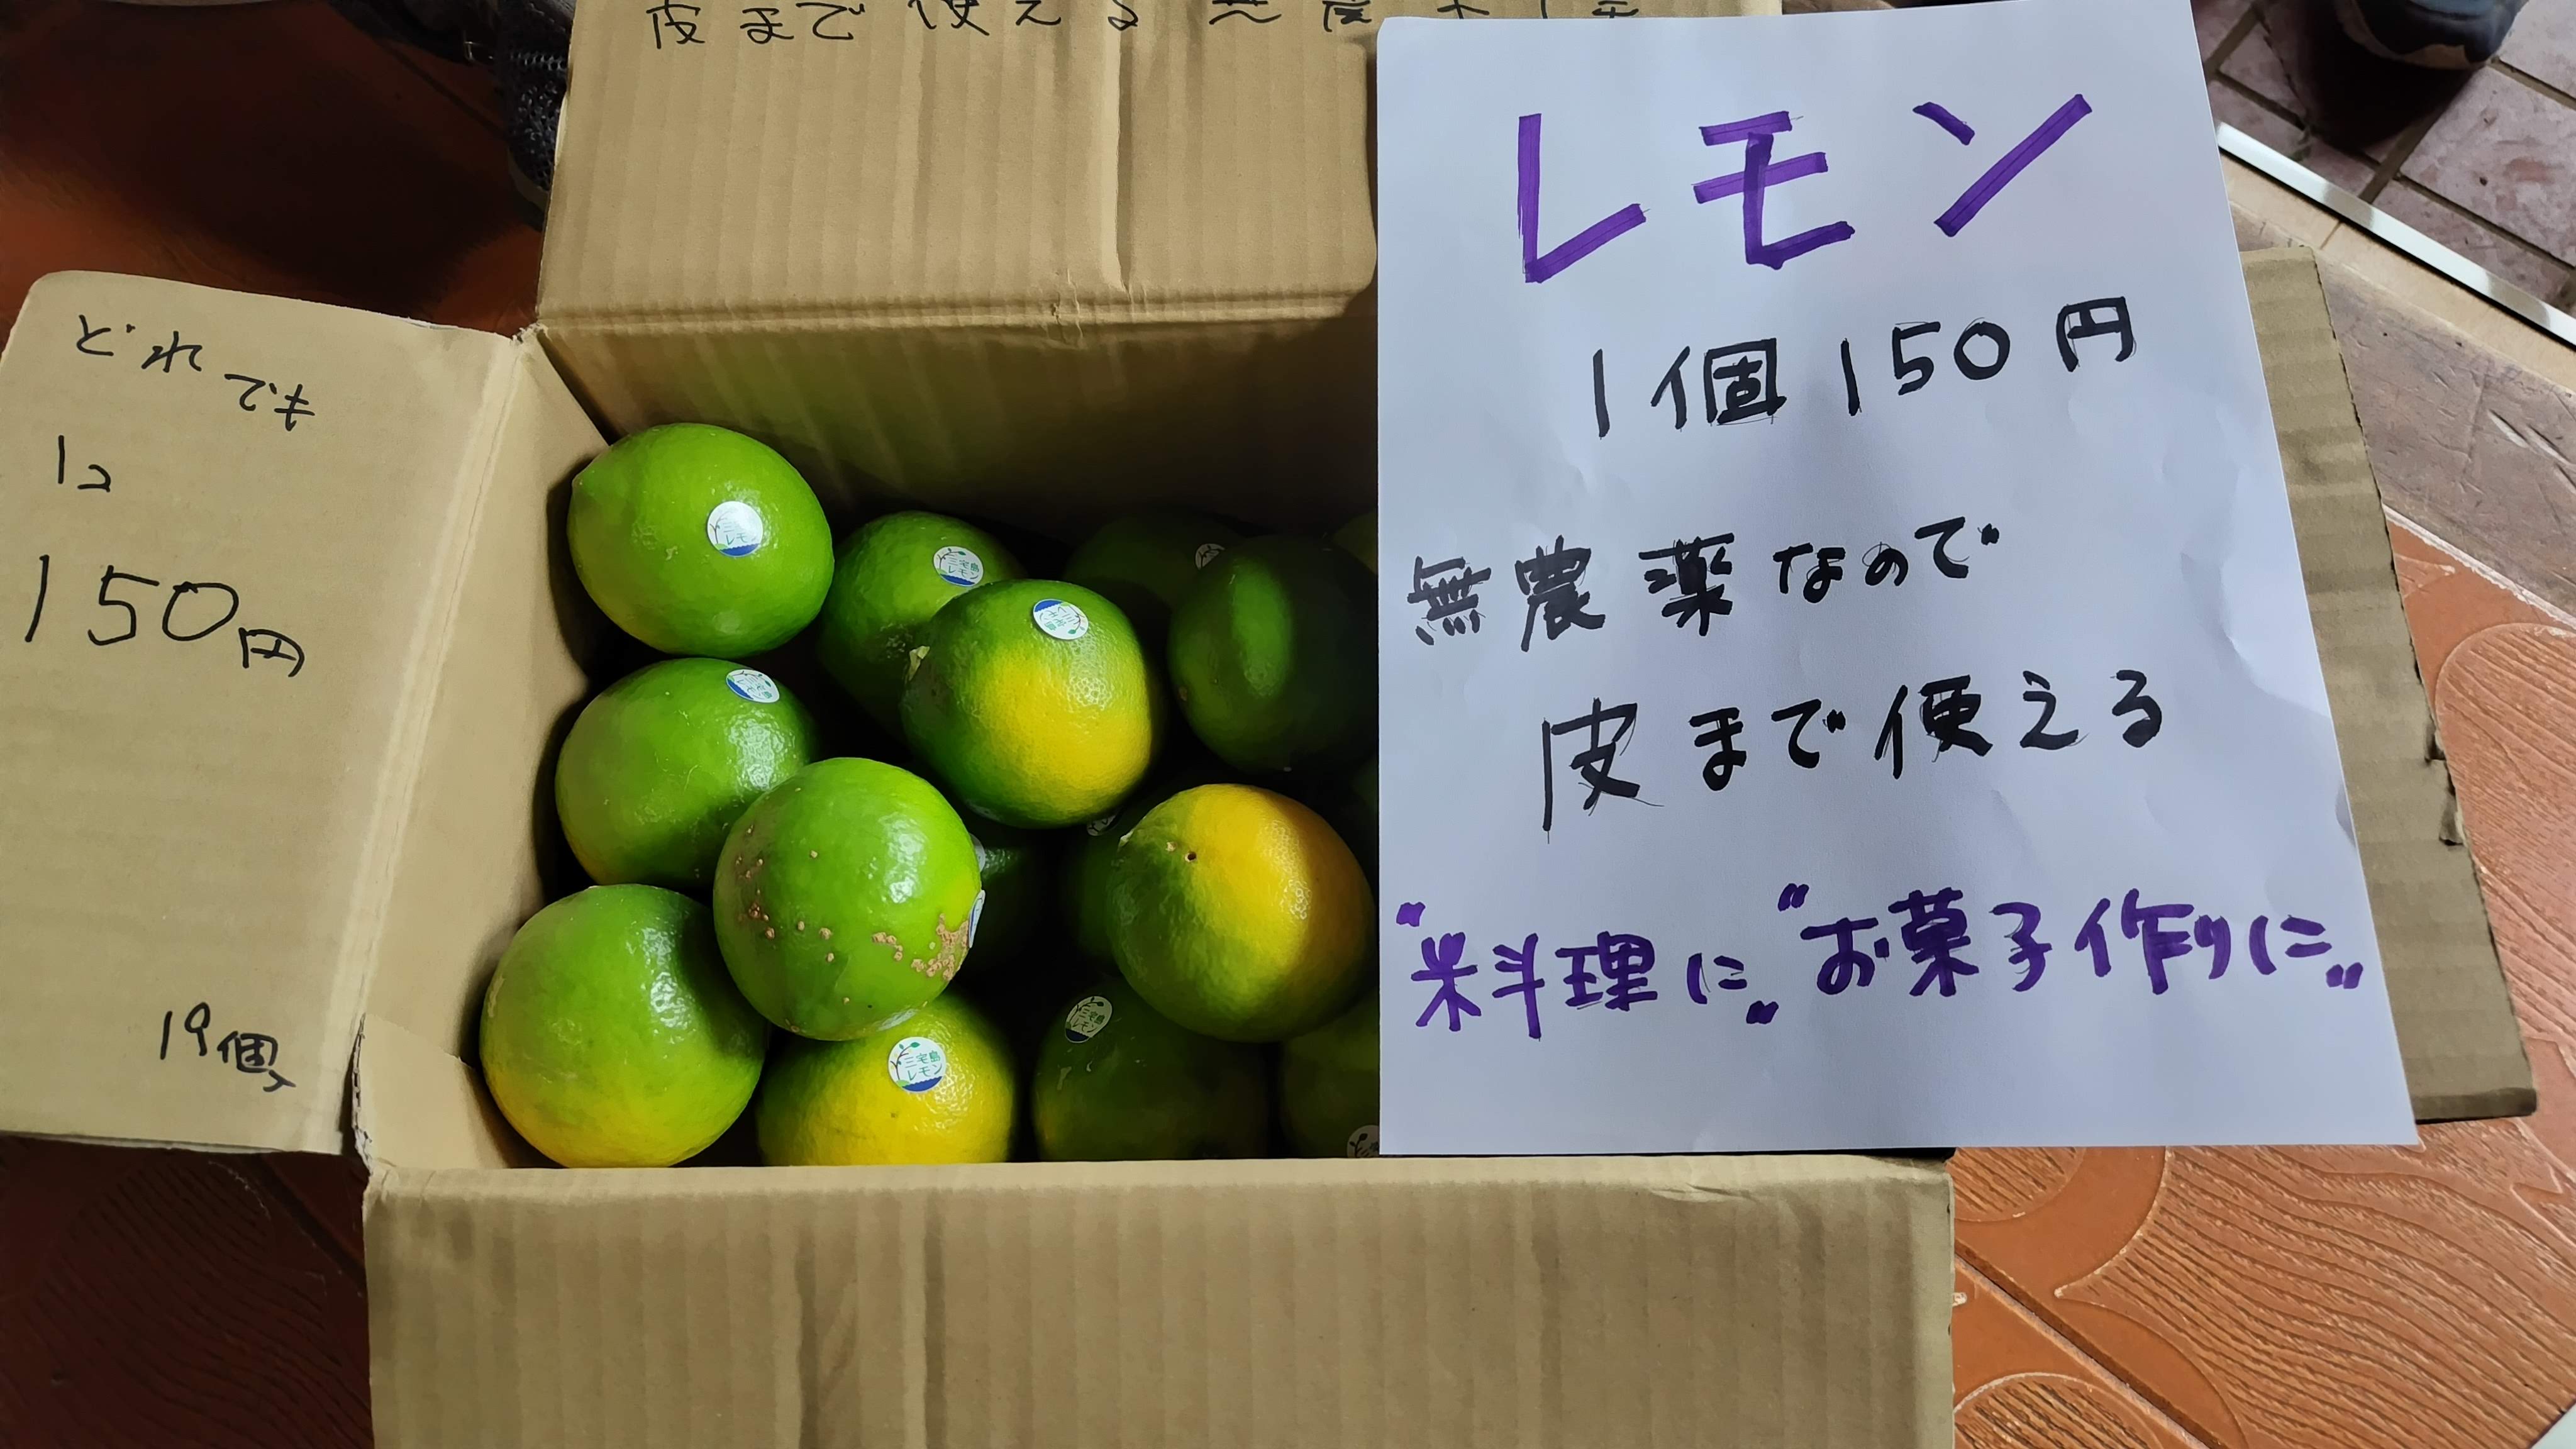 皮まで使える
どれでも
1コ
150円
19個入
レモン
1個150円
無農薬なので
皮まで使える
"料理に" "お菓子作りに"
三宅島
レモン